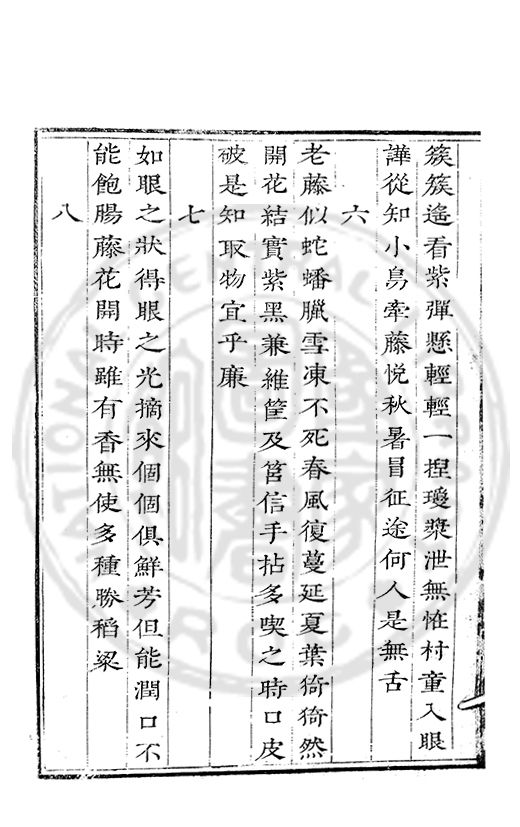 簇簇遙看紫彈懸輕輕一捏瓊漿泄無怪村童入眼
譁從知小鳥牽藤悅秋暑冒征途何人是無舌
六
老藤似蛇蟠臘雪凍不死春風復蔓延夏葉猗猗然
開花結實紫黑兼維筐及筥信手拈多喫之時口皮
破是知取物宜乎廉
七
如眼之狀得眼之光摘來個個俱鮮芳但能潤口不
能飽腸藤花開時雖有香無使多種勝稻粱
八